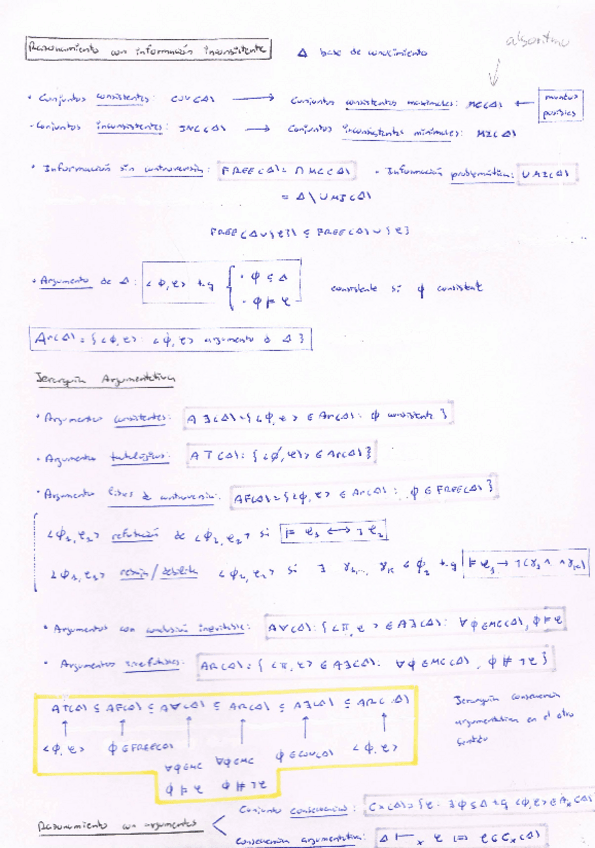 Razonamiento con información inconsistente
Δ base de conocimiento
algoritmo
· Conjuntos consistentes: CON(Δ) → Conjuntos consistentes maximales: MC(Δ) ← mundos posibles
· Conjuntos inconsistentes: INC(Δ) → Conjuntos inconsistentes minimales: MI(Δ)
· Información sin controversia: FREE(Δ) = ∩ MC(Δ) · Información problemática: ∪ MI(Δ)
= Δ \ ∪ MI(Δ)
FREE(Δ ∪ {φ}) ⊆ FREE(Δ) ∪ {φ}
· Argumento de Δ: <ϕ, φ> t.q { · ϕ ⊆ Δ
· ϕ ⊨ φ
consistente si ϕ consistente
Ar(Δ) = { <ϕ, φ> : <ϕ, φ> argumento de Δ }
Jerarquía Argumentativa
· Argumentos consistentes: A∃(Δ) = { <ϕ, φ> ∈ Ar(Δ) : ϕ consistente }
· Argumentos tautológicos: AT(Δ) : { <ϕ, φ> ∈ Ar(Δ) }
· Argumentos libres de controversia: AF(Δ) = { <ϕ, φ> ∈ Ar(Δ) : ϕ ∈ FREE(Δ) }
refutación de si
si ∃ t.q
· Argumentos con conclusión inevitable: A∀(Δ) : { <π, φ> ∈ A∃(Δ) : ∀ϕ ∈ MC(Δ), ϕ ⊨ φ
· Argumentos irrefutables: AR(Δ) = { <π, φ> ∈ A∃(Δ) : ∀ϕ ∈ MC(Δ), ϕ ⊭ ¬φ }
AT(Δ) ⊆ AF(Δ) ⊆ A∀(Δ) ⊆ AR(Δ) ⊆ A∃(Δ) ⊆ Ar(Δ)
Jerarquía consecuencia
argumentativa en el otro
sentido
<ϕ, φ> ϕ ∈ FREE(Δ) ∀ϕ ∈ MC ∀ϕ ∈ MC ϕ ∈ CON(Δ) <ϕ, φ>
ϕ ⊨ φ ϕ ⊭ ¬φ
Razonamiento con argumentos
Conjunto consecuencias: Cx(Δ) = { φ : ∃ϕ ⊆ Δ t.q <ϕ, φ> ∈ Ax(Δ)
Consecuencia argumentativa: Δ ⊢x φ ⟺ φ ∈ Cx(Δ)